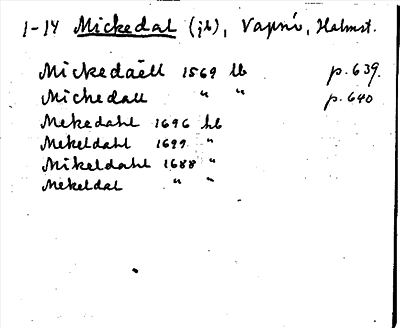 1-14 Mickedal (jb), Vapnö, Halmst.
Mickedaäll 1569 lb p. 639.
Michedall " " p. 640
Mekedahl 1696 hb
Mekeldahl 1699 "
Mikeldahl 1688 "
Mekeldal " "